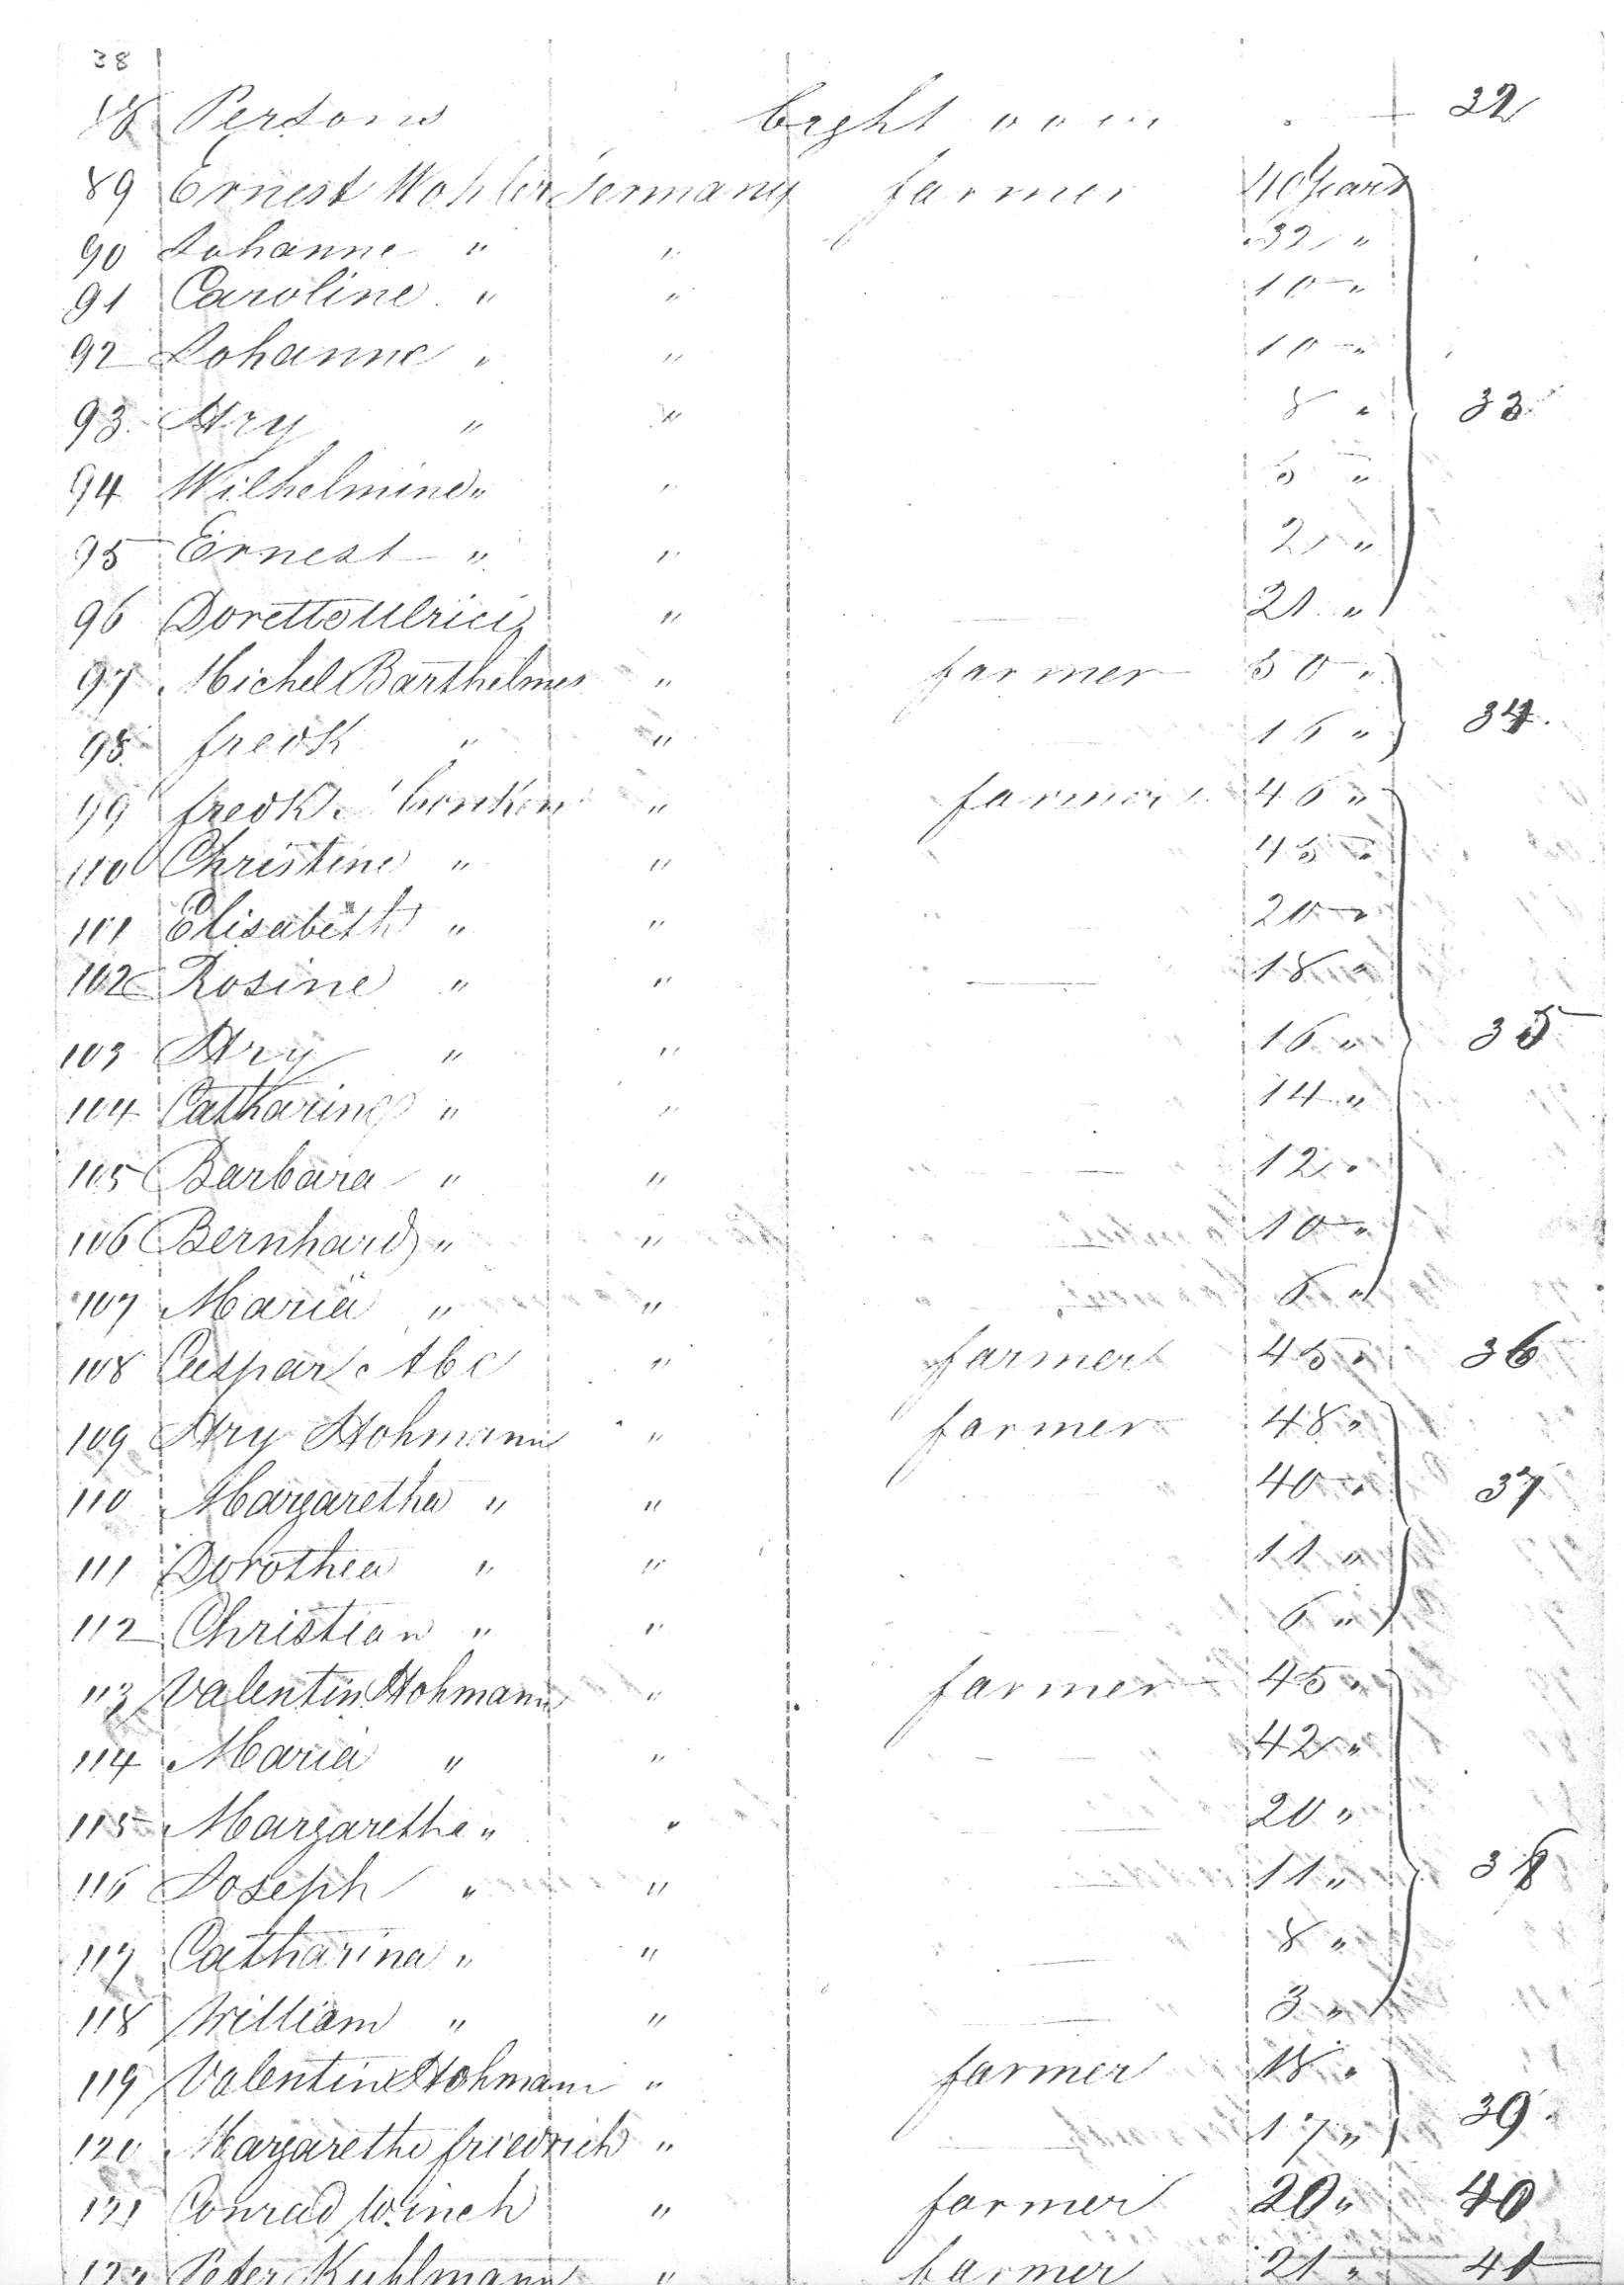 38
88 Persons 32
89 Ernest Wohler Germany farmer 40 Years
90 Johanne " " 32 "
91 Caroline " " 10 "
92 Johanne " " 10 "
93 Hry " " 8 " 33
94 Wilhelmine " " 5 "
95 Ernest " " 2 "
96 Dorette Ulrici " 21 "
97 Michel Barthelmes " farmer 50 "
98 fredk " " 16 " 34.
99 fredk. " farmer 46 "
110 Christine " " 45 "
101 Elisabeth " " 20 "
102 Rosine " " 18 "
103 Hry " " 16 " 35
104 Catharine " " 14 "
105 Barbara " " 12 "
106 Bernhard " " 10 "
107 Maria " " 6 "
108 Caspar Abe " farmer 45 " 36
109 Hry Hohmann " farmer 48 "
110 Margaretha " " 40 " 37
111 Dorothea " " 11 "
112 Christian " " 6 "
113 Valentin Hohmann " farmer 45 "
114 Maria " " 42 "
115 Margaretha " " 20 "
116 Joseph " " 11 " 38
117 Catharina " " 8 "
118 William " " 3 "
119 Valentin Hohmann " farmer 18 "
120 Margaretha friedrich " 17 " 39.
121 Conrad Winch " farmer 20 " 40
122 Peter Kuhlmann " farmer 21 " 41